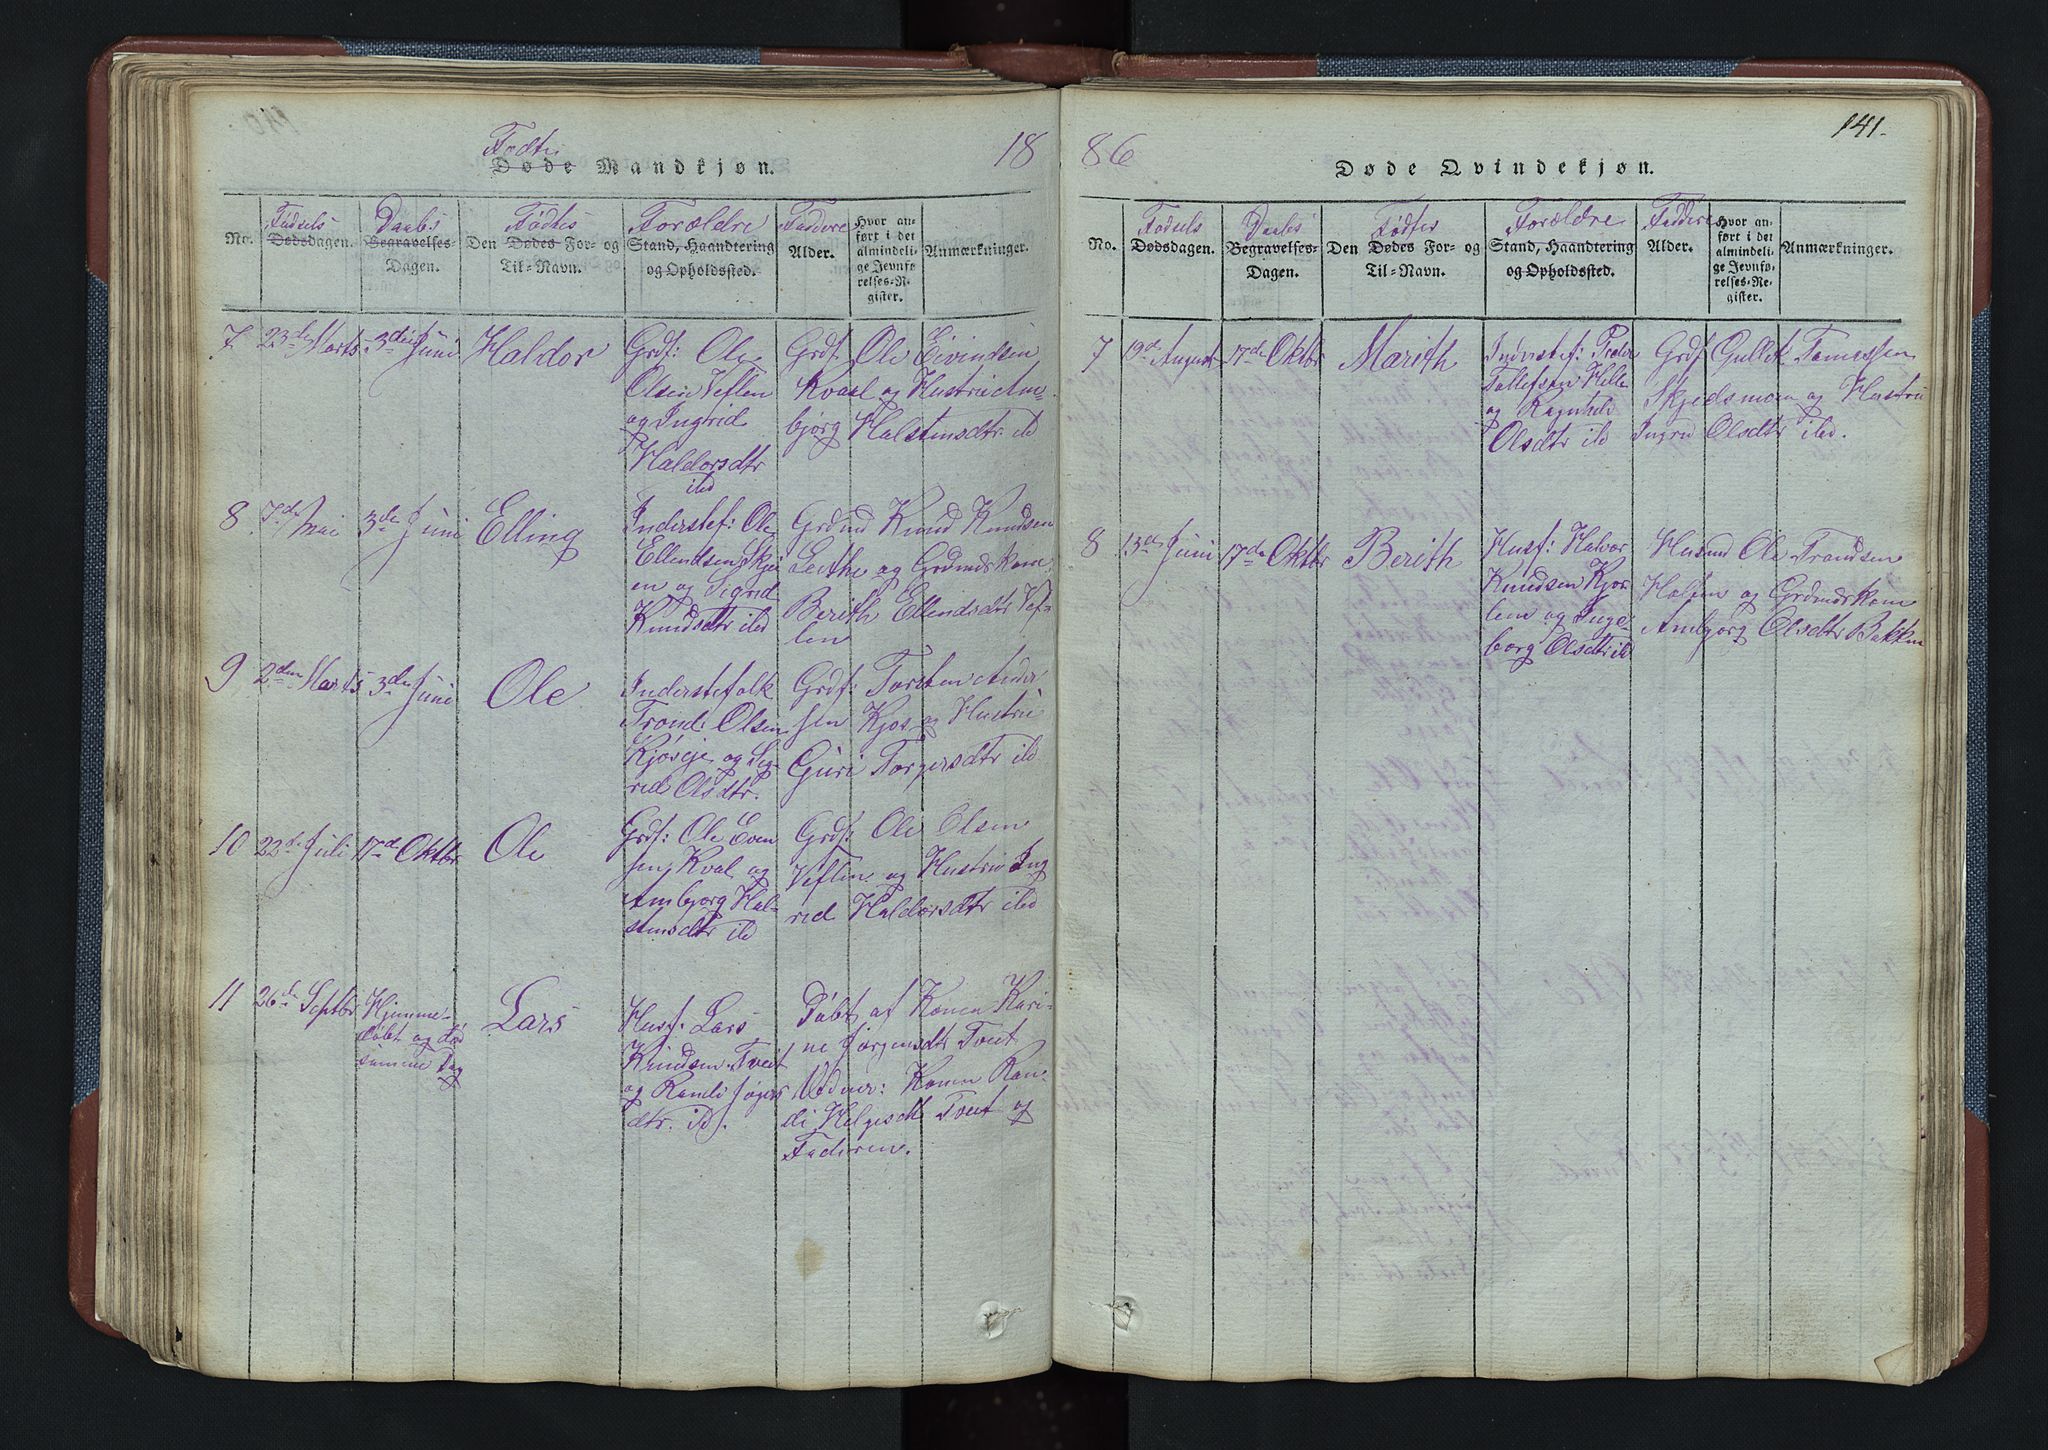 Fødte
Døde Mandkjøn.
18
No.
Fødsels
Dødsdagen.
Daabs
Begravelses-
Dagen.
Fødtes
Den Dødes For- og
Til-Navn.
Forældre
Stand, Haandtering
og Opholdssted.
Faddere
Alder.
Hvor an-
ført i det
almindeli-
ge Jevnfø-
relses-Re-
gister.
Anmærkninger.
7 23de Marts 3die Juni Haldor
Grdf: Ole
Olsen Veflen
og Ingrid
Haldorsdtr
ild
Grdf. Ole Eivindsen
Kvaal og Hustru Am-
bjørg Halstensdtr ild
8 7de Mai 3de Juni Elling
Inderstef: Ole
Ellendsen Skje
en og Sigrid
Knudsdtr ild
Grdmd Knud Knudsen
og Grdmdskone
Berith Ellendsdtr Vef-
len
9 2den Marts 3de Juni Ole
Inderstefolk
Trond Olsen
og Sig-
rid Olsdtr.
Grdf: Torsten Ander
sen Kjos og Hustru
Guri Torgersdtr ild
10 22de Juli 17de Oktbr Ole
Grdf: Ole Even
sen Kval og
Ambjørg Hal-
stensdtr ild
Grdf: Ole Olsen
Veflen og Hustru Ing
rid Haldorsdtr ild
11 26de Septbr Hjemme-
døbt og død
samme Dag
Lars
Husf: Lars
Knudsen Tveit
og Randi Jøgers
dtr. ild.
Døbt af Konen Kari-
ne Jørgensdtr Tveit
Vidner: Konen Ran-
di Helgesdt Tveit og
Faderen.
86
141.
Døde Qvindekjøn.
No.
Fødsels
Dødsdagen.
Daabs
Begravelses-
Dagen.
Fødtes
Den Dødes For- og
Til-Navn.
Forældre
Stand, Haandtering
og Opholdssted.
Faddere
Alder.
Hvor an-
ført i det
almindeli-
ge Jevnfø-
relses-Re-
gister.
Anmærkninger.
7 19de August 17de Oktbr Marith
Inderstef: Peder
Tollefsen Helle
og Ragnhild
Olsdtr ild
Grdf Gullek Tomassen
Skjedsmoen og Hustru
Ingri Olsdtr ild.
8 13de Juni 17de Oktbr Berith
Husf: Halvor
Knudsen Kjor
len og Inge
borg Olsdtr ild
Husmd Ole Trondsen
og Grdmdskone
Ambjørg Olsdtr Bakken